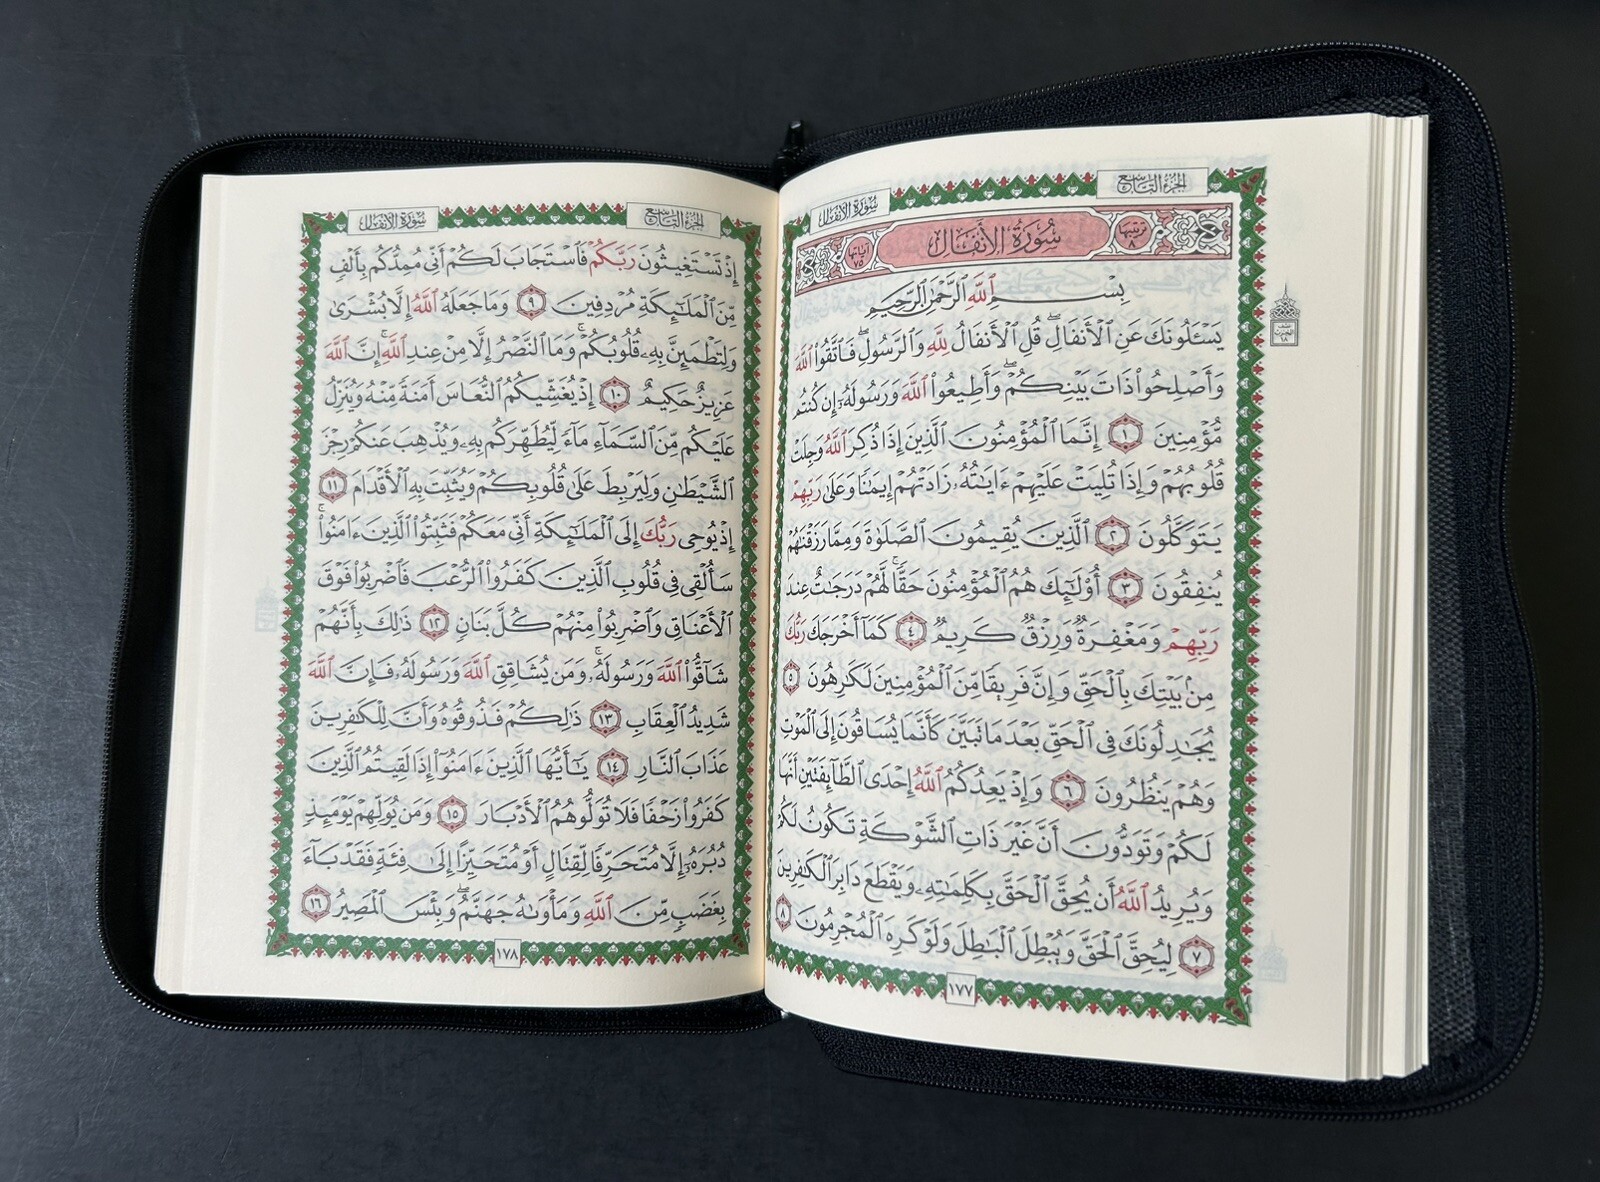 سُورَةُ الأَنفَالِ
الجُزْءُ التَّاسِعُ
ترتيبها ٨
سُورَةُ الأَنفَالِ
آياتها ٧٥
بِسْمِ ٱللَّهِ ٱلرَّحْمَٰنِ ٱلرَّحِيمِ
يَسْـَٔلُونَكَ عَنِ ٱلْأَنفَالِۖ قُلِ ٱلْأَنفَالُ لِلَّهِ وَٱلرَّسُولِۖ فَٱتَّقُوا۟ ٱللَّهَ
وَأَصْلِحُوا۟ ذَاتَ بَيْنِكُمْۖ وَأَطِيعُوا۟ ٱللَّهَ وَرَسُولَهُۥٓ إِن كُنتُم
مُّؤْمِنِينَ ١ إِنَّمَا ٱلْمُؤْمِنُونَ ٱلَّذِينَ إِذَا ذُكِرَ ٱللَّهُ وَجِلَتْ
قُلُوبُهُمْ وَإِذَا تُلِيَتْ عَلَيْهِمْ ءَايَٰتُهُۥ زَادَتْهُمْ إِيمَٰنًا وَعَلَىٰ رَبِّهِمْ
يَتَوَكَّلُونَ ٢ ٱلَّذِينَ يُقِيمُونَ ٱلصَّلَوٰةَ وَمِمَّا رَزَقْنَٰهُمْ
يُنفِقُونَ ٣ أُو۟لَٰٓئِكَ هُمُ ٱلْمُؤْمِنُونَ حَقًّاۚ لَّهُمْ دَرَجَٰتٌ عِندَ
رَبِّهِمْ وَمَغْفِرَةٌ وَرِزْقٌ كَرِيمٌ ٤ كَمَآ أَخْرَجَكَ رَبُّكَ
مِنۢ بَيْتِكَ بِٱلْحَقِّ وَإِنَّ فَرِيقًا مِّنَ ٱلْمُؤْمِنِينَ لَكَٰرِهُونَ ٥
يُجَٰدِلُونَكَ فِى ٱلْحَقِّ بَعْدَ مَا تَبَيَّنَ كَأَنَّمَا يُسَاقُونَ إِلَى ٱلْمَوْتِ
وَهُمْ يَنظُرُونَ ٦ وَإِذْ يَعِدُكُمُ ٱللَّهُ إِحْدَى ٱلطَّآئِفَتَيْنِ أَنَّهَا
لَكُمْ وَتَوَدُّونَ أَنَّ غَيْرَ ذَاتِ ٱلشَّوْكَةِ تَكُونُ لَكُمْ
وَيُرِيدُ ٱللَّهُ أَن يُحِقَّ ٱلْحَقَّ بِكَلِمَٰتِهِۦ وَيَقْطَعَ دَابِرَ ٱلْكَٰفِرِينَ
٧ لِيُحِقَّ ٱلْحَقَّ وَيُبْطِلَ ٱلْبَٰطِلَ وَلَوْ كَرِهَ ٱلْمُجْرِمُونَ ٨
١٧٧
سُورَةُ الأَنفَالِ
الجُزْءُ التَّاسِعُ
إِذْ تَسْتَغِيثُونَ رَبَّكُمْ فَٱسْتَجَابَ لَكُمْ أَنِّى مُمِدُّكُم بِأَلْفٍ
مِّنَ ٱلْمَلَٰٓئِكَةِ مُرْدِفِينَ ٩ وَمَا جَعَلَهُ ٱللَّهُ إِلَّا بُشْرَىٰ
وَلِتَطْمَئِنَّ بِهِۦ قُلُوبُكُمْۚ وَمَا ٱلنَّصْرُ إِلَّا مِنْ عِندِ ٱللَّهِۚ إِنَّ ٱللَّهَ
عَزِيزٌ حَكِيمٌ ١٠ إِذْ يُغَشِّيكُمُ ٱلنُّعَاسَ أَمَنَةً مِّنْهُ وَيُنَزِّلُ
عَلَيْكُم مِّنَ ٱلسَّمَآءِ مَآءً لِّيُطَهِّرَكُم بِهِۦ وَيُذْهِبَ عَنكُمْ رِجْزَ
ٱلشَّيْطَٰنِ وَلِيَرْبِطَ عَلَىٰ قُلُوبِكُمْ وَيُثَبِّتَ بِهِ ٱلْأَقْدَامَ ١١
إِذْ يُوحِى رَبُّكَ إِلَى ٱلْمَلَٰٓئِكَةِ أَنِّى مَعَكُمْ فَثَبِّتُوا۟ ٱلَّذِينَ ءَامَنُوا۟ۚ
سَأُلْقِى فِى قُلُوبِ ٱلَّذِينَ كَفَرُوا۟ ٱلرُّعْبَ فَٱضْرِبُوا۟ فَوْقَ
ٱلْأَعْنَاقِ وَٱضْرِبُوا۟ مِنْهُمْ كُلَّ بَنَانٍ ١٢ ذَٰلِكَ بِأَنَّهُمْ
شَآقُّوا۟ ٱللَّهَ وَرَسُولَهُۥۚ وَمَن يُشَاقِقِ ٱللَّهَ وَرَسُولَهُۥ فَإِنَّ ٱللَّهَ
شَدِيدُ ٱلْعِقَابِ ١٣ ذَٰلِكُمْ فَذُوقُوهُ وَأَنَّ لِلْكَٰفِرِينَ
عَذَابَ ٱلنَّارِ ١٤ يَٰٓأَيُّهَا ٱلَّذِينَ ءَامَنُوٓا۟ إِذَا لَقِيتُمُ ٱلَّذِينَ
كَفَرُوا۟ زَحْفًا فَلَا تُوَلُّوهُمُ ٱلْأَدْبَارَ ١٥ وَمَن يُوَلِّهِمْ يَوْمَئِذٍ
دُبُرَهُۥٓ إِلَّا مُتَحَرِّفًا لِّقِتَالٍ أَوْ مُتَحَيِّزًا إِلَىٰ فِئَةٍ فَقَدْ بَآءَ
بِغَضَبٍ مِّنَ ٱللَّهِ وَمَأْوَىٰهُ جَهَنَّمُۖ وَبِئْسَ ٱلْمَصِيرُ ١٦
١٧٨